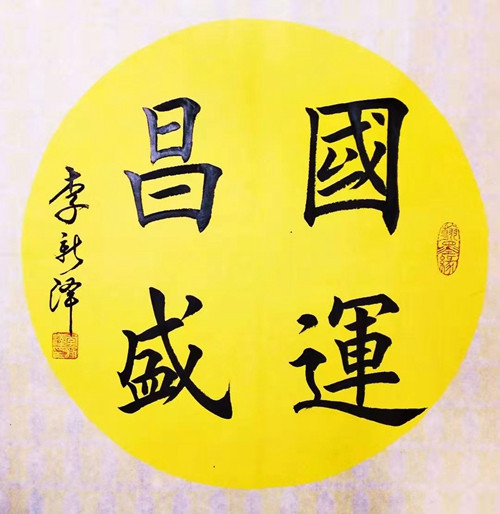 國運
昌盛
李新泽